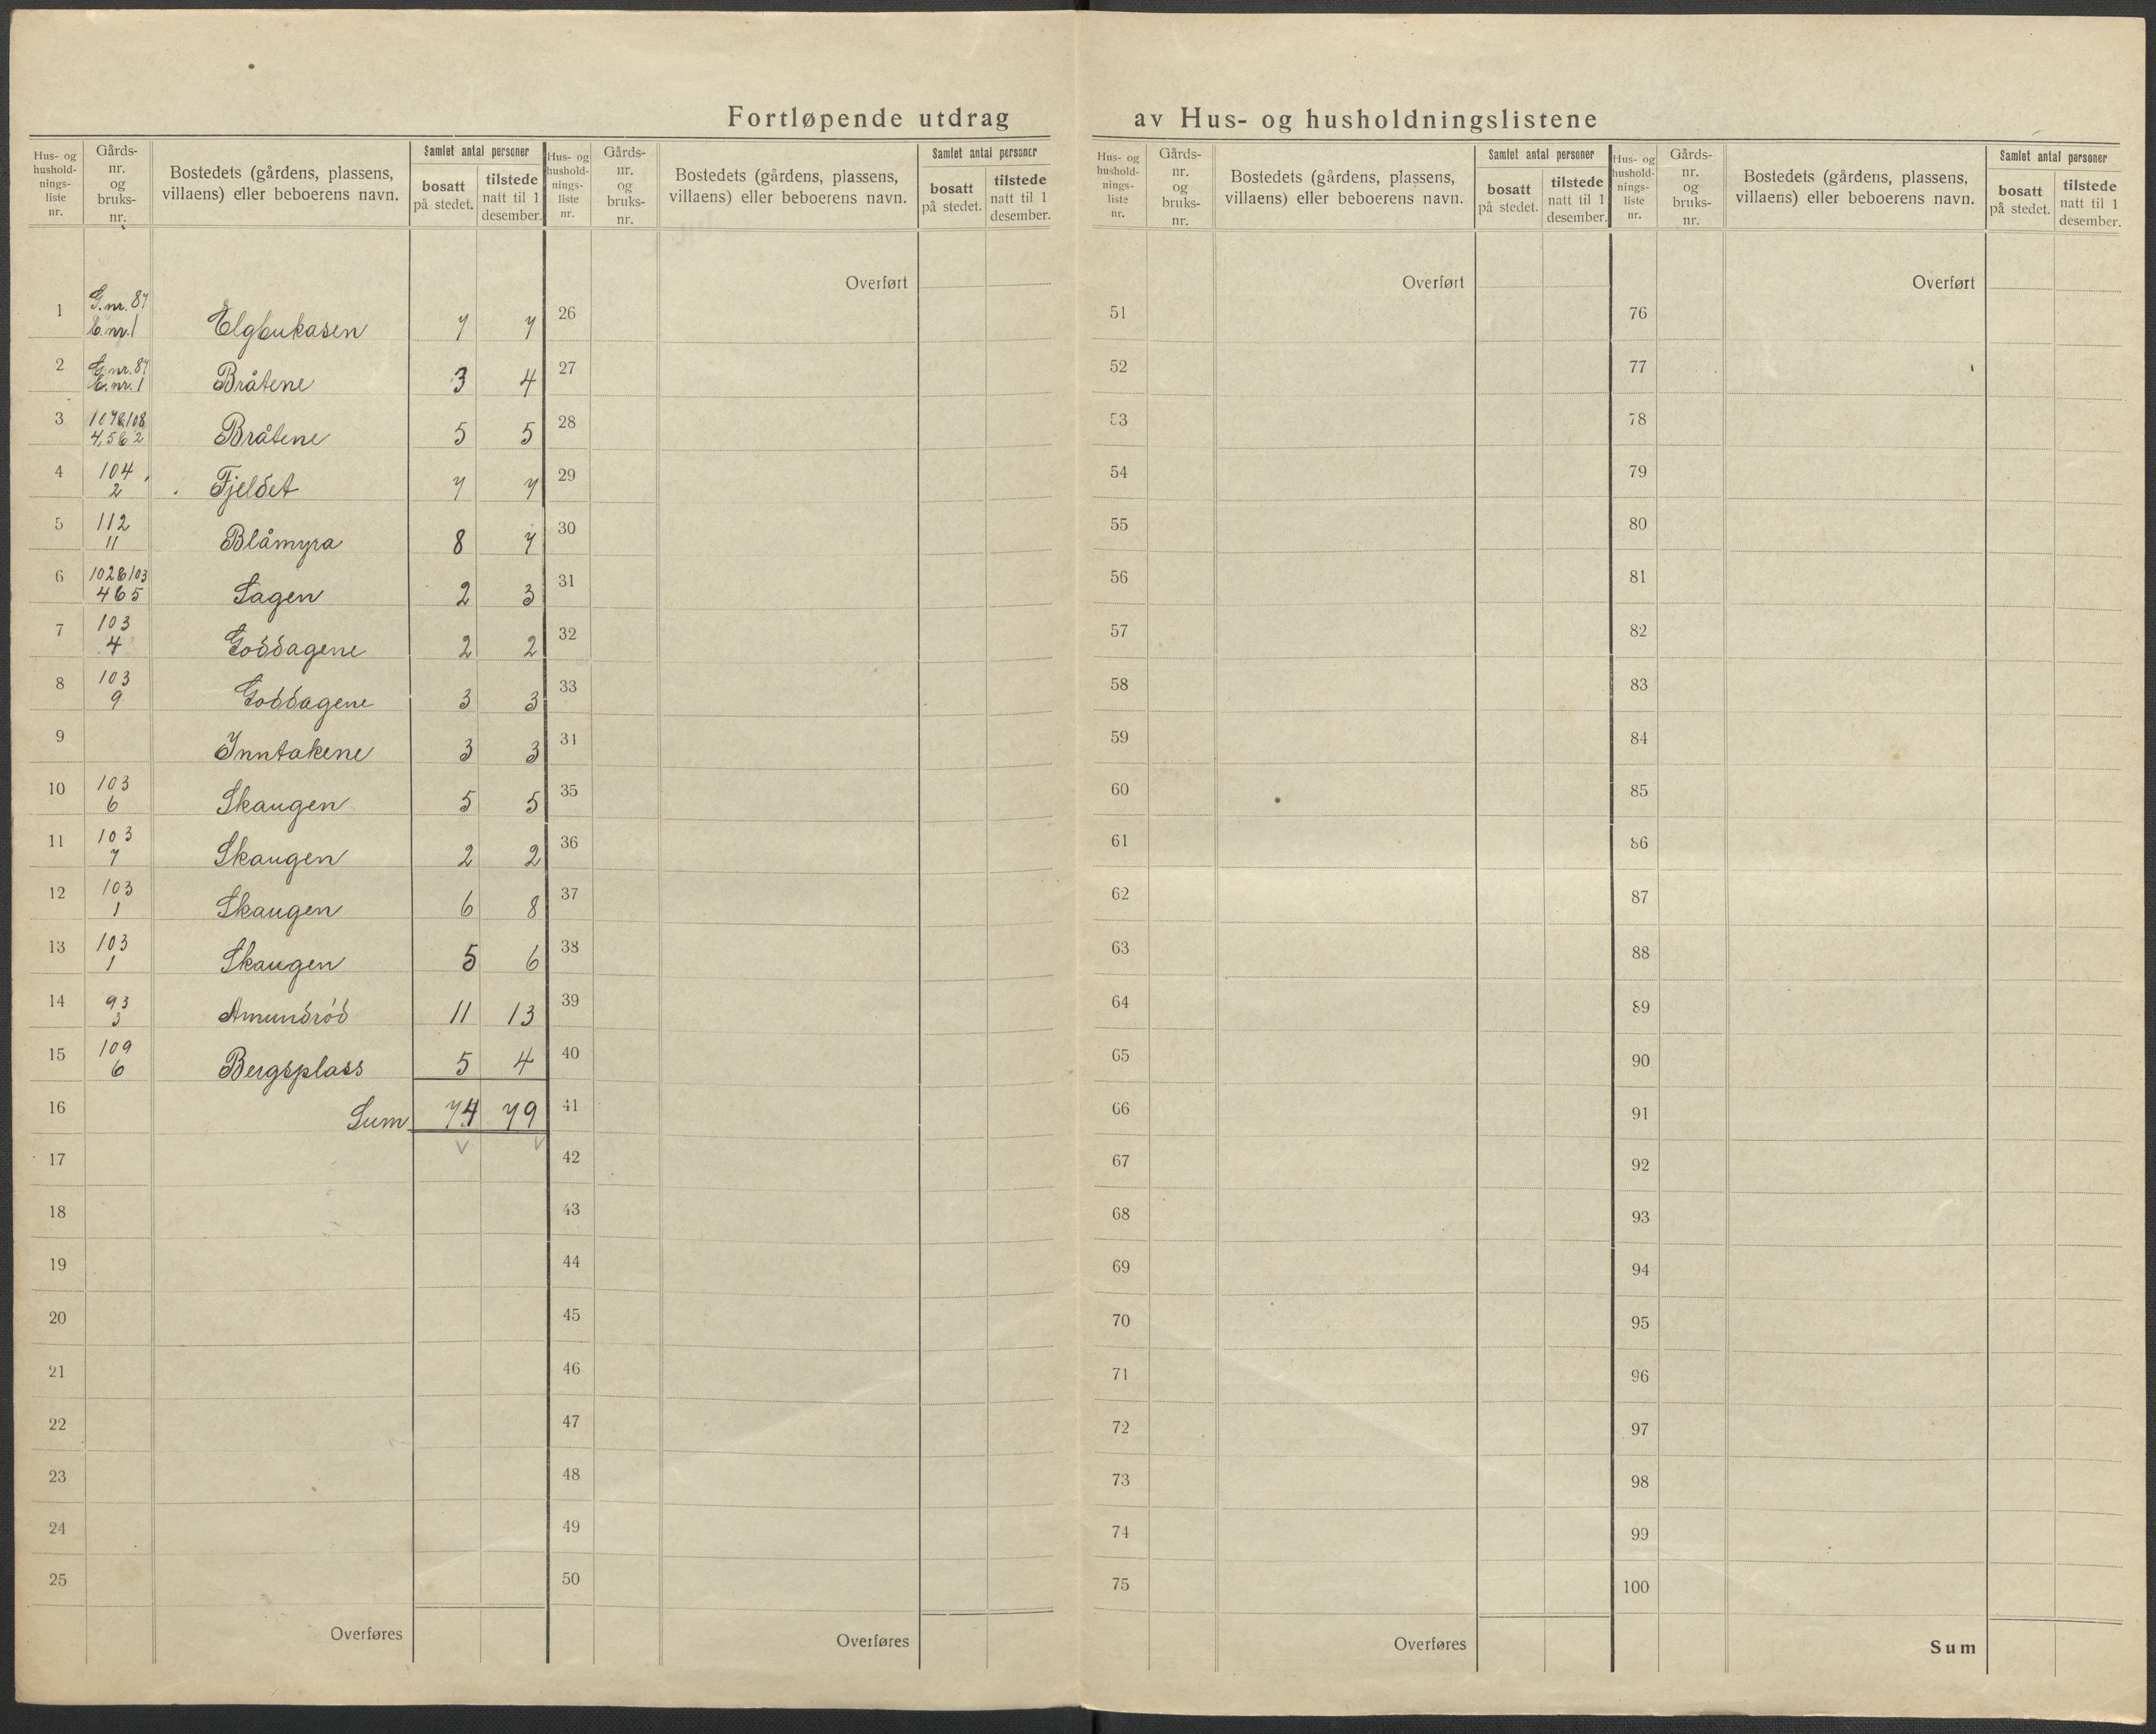 Fortløpende utdrag av Hus- og husholdningslistene
Hus- og hushold-nings-liste nr.
Gårds-nr. og bruks-nr.
Bostedets (gårdens, plassens, villaens) eller beboerens navn.
Samlet antal personer
bosatt på stedet.
tilstede natt til 1 desember.
1 G.nr. 87 B.nr. 1 Elgbukasen 7 7
2 G.nr. 87 B.nr. 1 Bråtene 3 4
3 107 & 108 4,5 & 2 Bråtene 5 5
4 104 2 Fjeldet 7 7
5 112 11 Blåmyra 8 7
6 102 & 103 4 & 5 Sagen 2 3
7 103 4 Goddagene 2 2
8 103 9 Goddagene 3 3
9 Inntakene 3 3
10 103 6 Skaugen 5 5
11 103 7 Skaugen 2 2
12 103 1 Skaugen 6 8
13 103 1 Skaugen 5 6
14 93 3 Amundrød 11 13
15 109 6 Bergsplass 5 4
16 Sum 74 79
17
18
19
20
21
22
23
24
25
Overføres
Hus- og hushold-nings-liste nr.
Gårds-nr. og bruks-nr.
Bostedets (gårdens, plassens, villaens) eller beboerens navn.
Samlet antal personer
bosatt på stedet.
tilstede natt til 1 desember.
Overført
26
27
28
29
30
31
32
33
31
35
36
37
38
39
40
41
42
43
44
45
46
47
48
49
50
Overføres
Hus- og hushold-nings-liste nr.
Gårds-nr. og bruks-nr.
Bostedets (gårdens, plassens, villaens) eller beboerens navn.
Samlet antal personer
bosatt på stedet.
tilstede natt til 1 desember.
Overført
51
52
53
54
55
56
57
58
59
60
61
62
63
64
65
66
67
68
69
70
71
72
73
74
75
Overføres
Hus- og hushold-nings-liste nr.
Gårds-nr. og bruks-nr.
Bostedets (gårdens, plassens, villaens) eller beboerens navn.
Samlet antal personer
bosatt på stedet.
tilstede natt til 1 desember.
Overført
76
77
78
79
80
81
82
83
84
85
86
87
88
89
90
91
92
93
94
95
96
97
98
99
100
Sum